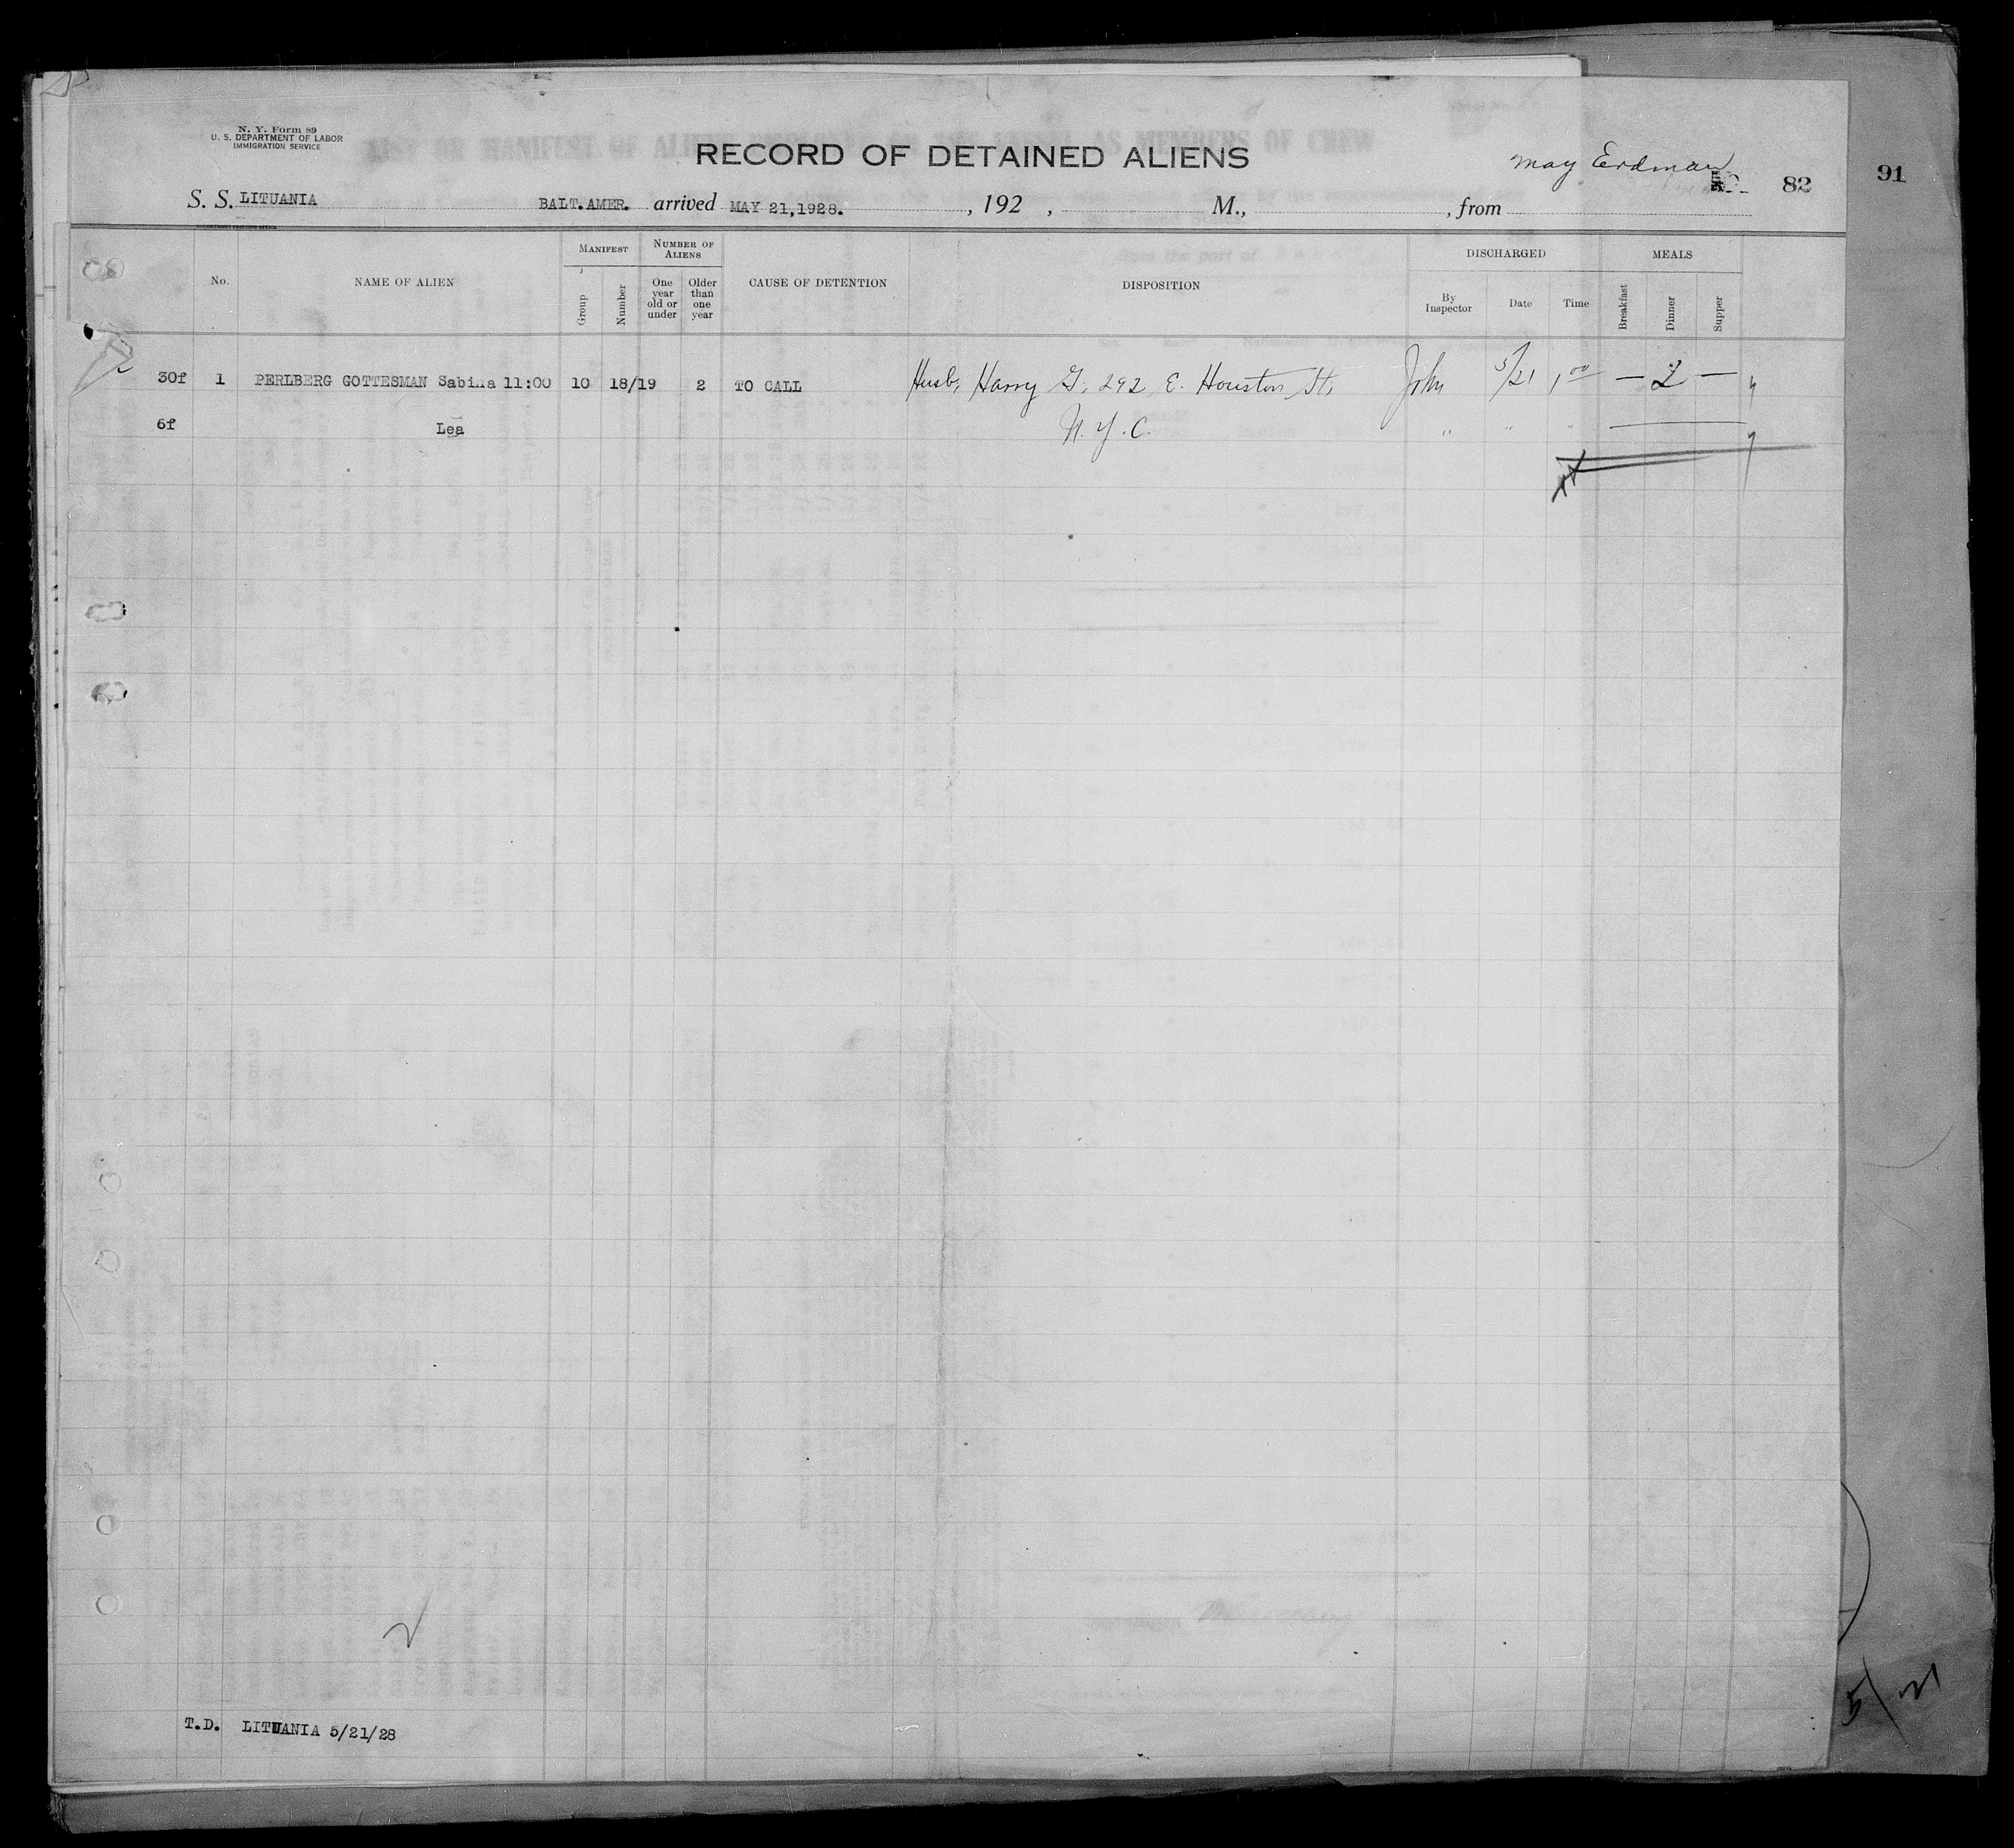 N. Y. Form 89
U. S. DEPARTMENT OF LABOR
IMMIGRATION SERVICE
RECORD OF DETAINED ALIENS
May Erdman
82
91
S. S. LITUANIA BALT.AMER. arrived MAY 21,1928. , 192 , M., , from
No.
NAME OF ALIEN
MANIFEST
Group
Number
NUMBER OF ALIENS
One year old or under
Older than one year
CAUSE OF DETENTION
DISPOSITION
DISCHARGED
By Inspector
Date
Time
MEALS
Breakfast
Dinner
Supper
30f 1 PERLBERG GOTTESMAN Sabina 11:00 10 18/19 2 TO CALL Husb, Harry G, 292 E. Houston St, John 5/21 1 00 — 2 —
6f Lea N. Y. C. " " "
T.D. LITUANIA 5/21/28
5/21